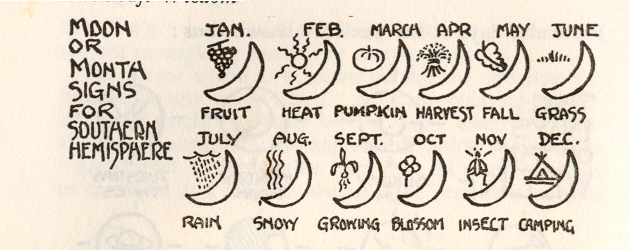 MOON
OR
MONTH
SIGNS
FOR
SOUTHERN
HEMISPHERE
JAN. FEB. MARCH APR MAY JUNE
FRUIT HEAT PUMPKIN HARVEST FALL GRASS
JULY AUG. SEPT. OCT NOV DEC.
RAIN SNOWY GROWING BLOSSOM INSECT CAMPING